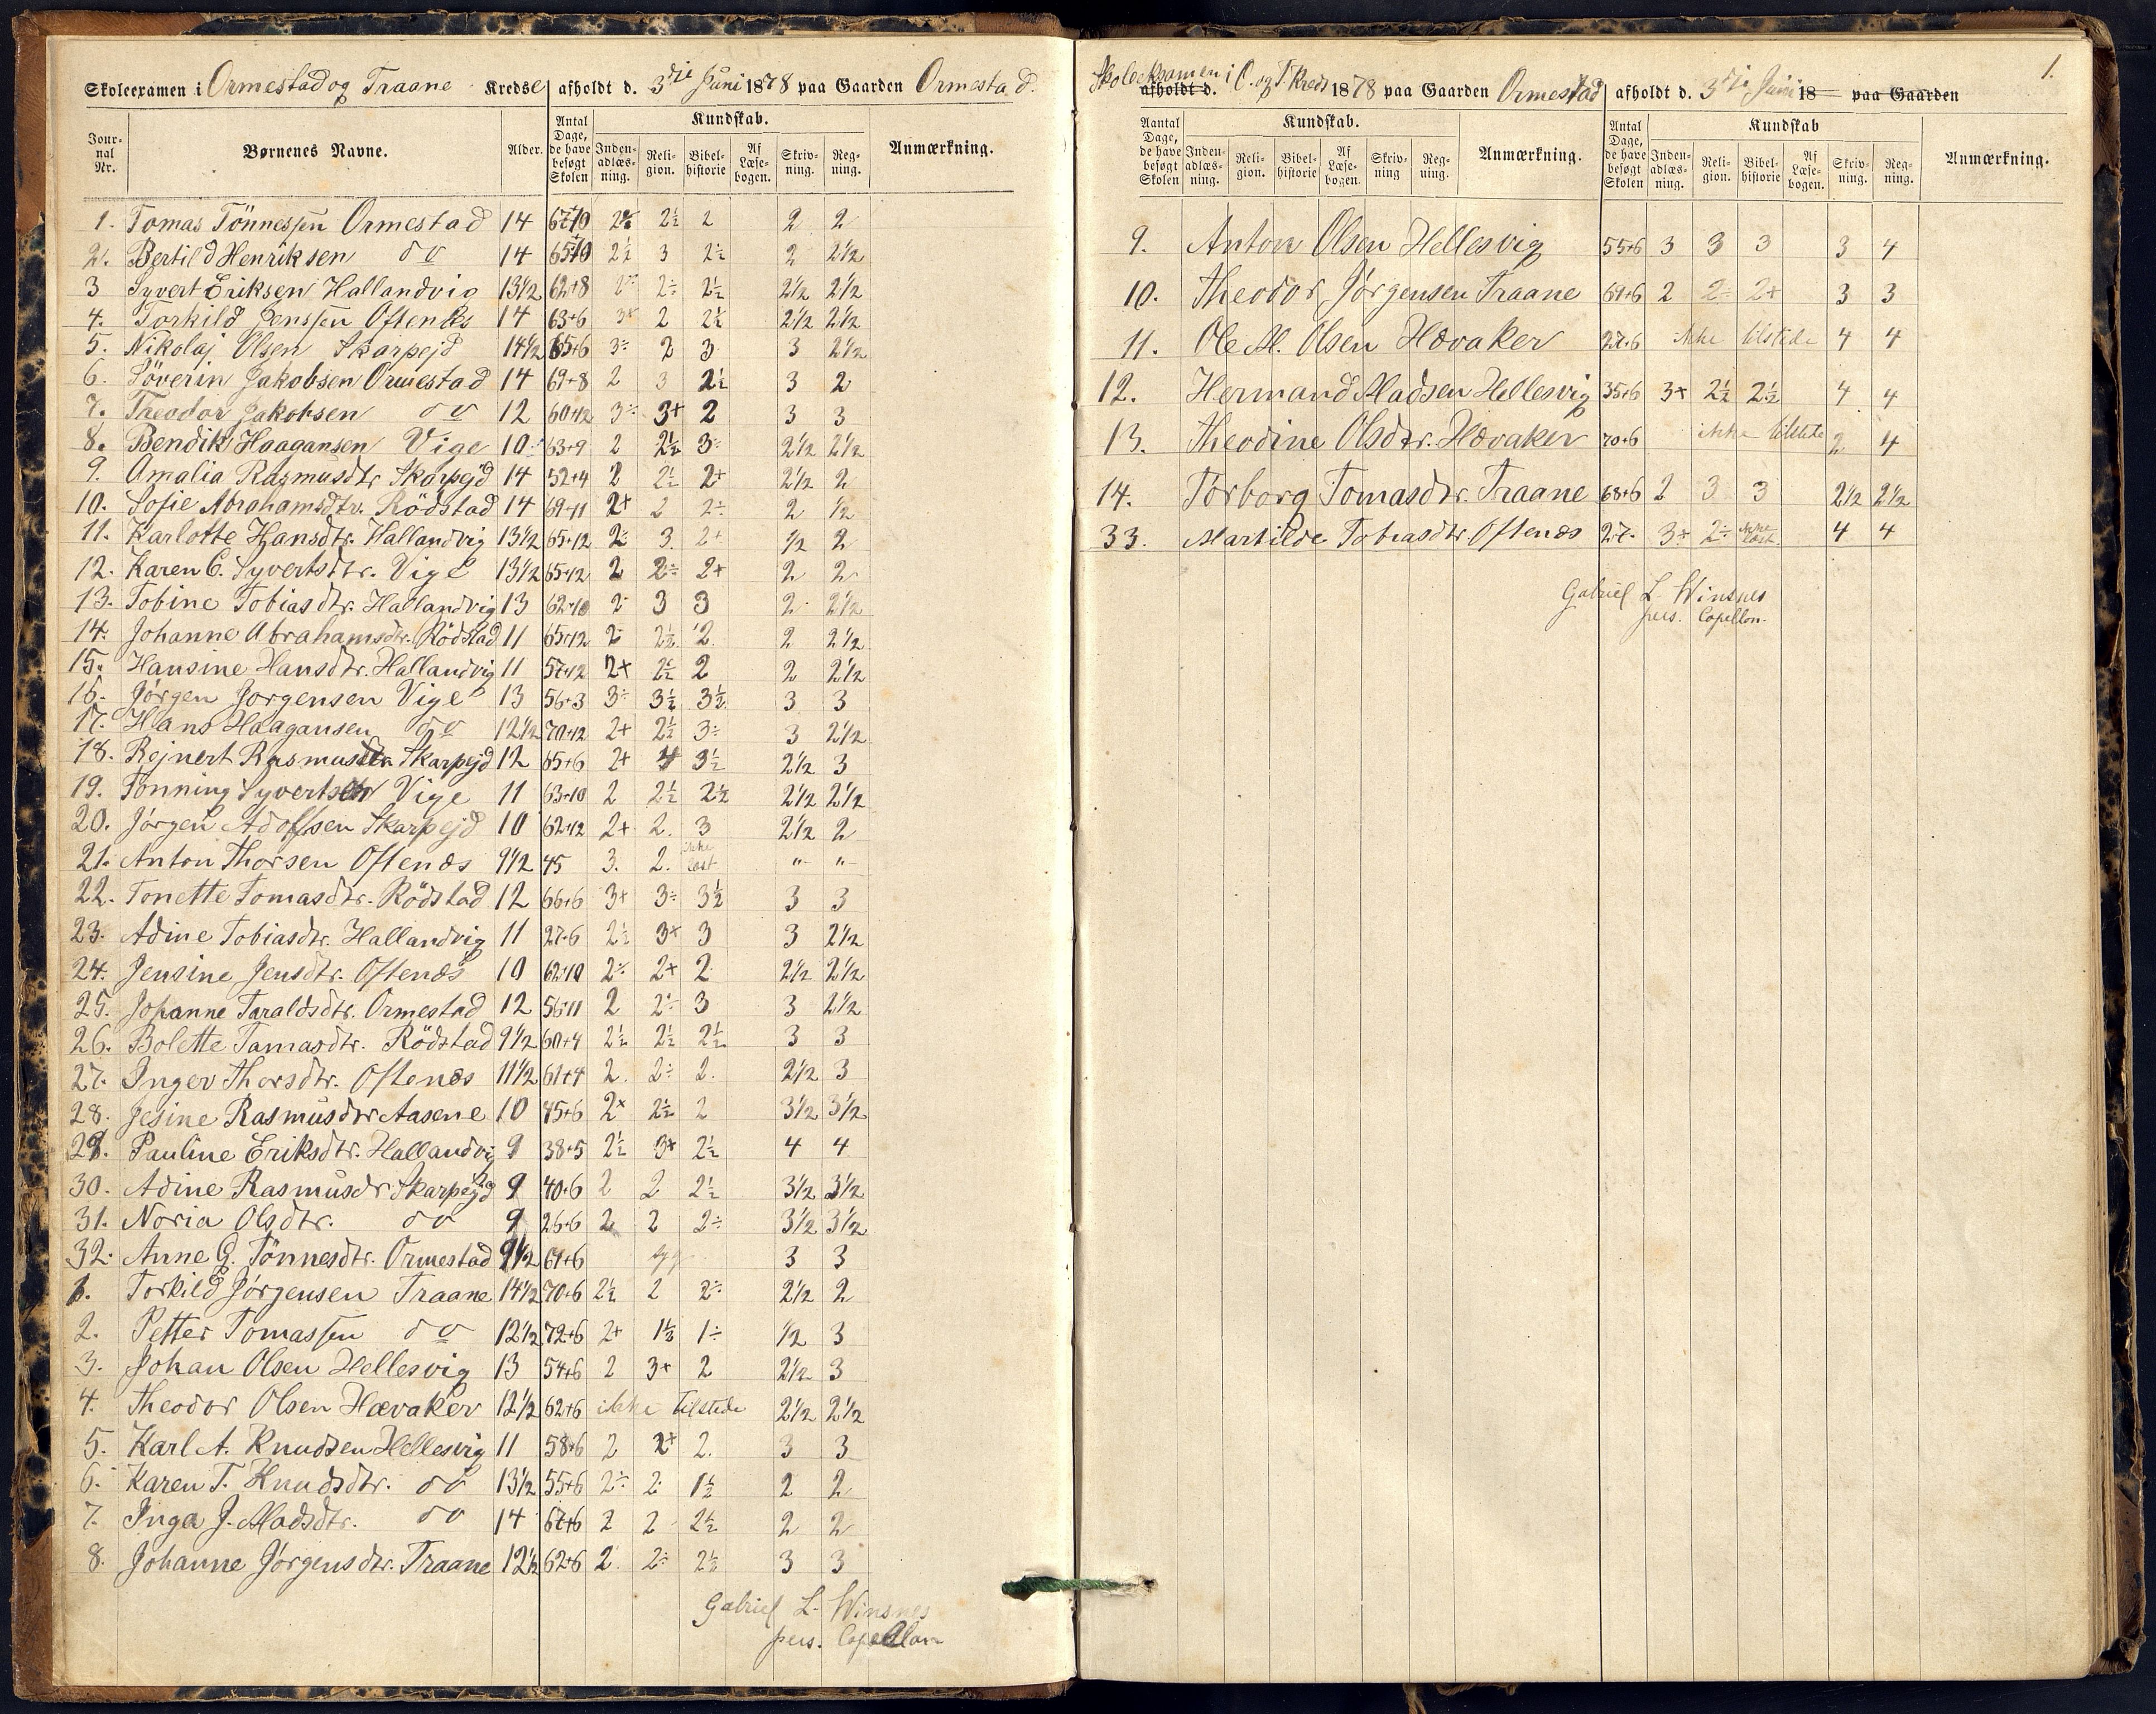 Skoleexamen i Ormestad og Traane Kredse afholdt d. 3die Juni 1878 paa Gaarden Ormestad.
Jour-nal Nr. Børnenes Navne. Alder. Antal Dage, de have besøgt Skolen Kundskab. Inden-adlæs-ning. Reli-gion. Bibel-historie Af Læse-bogen. Skriv-ning. Reg-ning. Anmærkning.
1. Tomas Tönnessen Ormestad 14 67+10 2½ 2 2 2
2. Bertild Henriksen do 14 65+10 2½ 3 2½ 2 2½
3 Syvert Eriksen Hallandvig 13½ 62+8 2÷ 2½ 2½ 2½
4. Torkild Jenssen Oftenes 14 63+6 2 2½ 2½ 2½
5. Nikolaj Olsen Skarpejd 14½ 65+6 3÷ 2 3 3 2½
6. Söverin Jakobsen Ormestad 14 69+8 2 3 2½ 3 2
7. Theodor Jakobsen do 12 60+12 3÷ 3+ 2 3 3
8. Bendik Haagansen Vige 10 63+9 2 2½ 3÷ 2½ 2½
9. Amalia Rasmusdtr Skarpejd 14 52+4 2 2½ 2+ 2½ 2
10. Sofie Abrahamsdtr. Rödstad 14 69+11 2+ 2 2÷ 2 ½
11. Karlotte Hansdtr. Hallandvig 13½ 65+12 2÷ 3. 2+ ½ 2
12. Karen C. Syvertsdtr. Vige 13½ 65+12 2 2÷ 2+ 2 2
13. Tobine Tobiasdtr. Hallandvig 13 62+10 2÷ 3 3 2 2½
14. Johanne Abrahamsdtr. Rödstad 11 65+12 2÷ 2½ 2. 2 2½
15. Hansine Hansdtr. Hallandvig 11 57+12 2+ 2½ 2 2 2½
16. Jørgen Jørgensen Vige 13 56+3 3÷ 3½ 3½ 3 3
17. Hans Haagansen do 12½ 70+12 2+ 2½ 3÷ 3 2½
18. Rejnert Rasmussen Skarpejd 12 65+6 2+ 4 3½ 2½ 3
19. Tönning Syvertsen Vige 11 63+10 2 2½ 2½ 2½ 2½
20. Jørgen Adolfsen Skarpejd 10 62+12 2+ 2. 3 2½ 2
21. Anton Thorsen Oftenes 9½ 45 3. 2. ikke læst " "
22. Tonette Tomasdtr. Rödstad 12 66+6 3+ 3÷ 3½ 3 3
23. Adine Tobiasdtr. Hallandvig 11 27+6 2½ 3+ 3 3 2½
24. Jensine Jensdtr. Oftenes 10 62+10 2÷ 2+ 2 2½ 2½
25. Johanne Taraldsdtr. Ormestad 12 56+11 2 2÷ 3 3 2½
26. Bolette Tomasdtr. Rödstad 9½ 60+4 2½ 2½ 2½ 3 3
27. Inger Thorsdtr. Oftenes 11½ 61+4 2. 2÷ 2. 2½ 3
28. Jesine Rasmusdtr Aasene 10 45+6 2+ 2½ 2 3½ 3½
29. Pauline Eriksdtr. Hallandvig 9 38+5 2½ 3+ 2½ 4 4
30. Adine Rasmusdr Skarpejd 9 40+6 2 2 2½ 3½ 3½
31. Noria Olsdtr. do 9 26+6 2 2 2÷ 3½ 3½
32. Anne G. Tönnesdtr. Ormestad 9½ 61+6 3 3
1. Torkild Jørgensen Traane 14½ 70+6 2½ 2 2÷ 2½ 2
2. Petter Tomassen do 12½ 72+6 2+ 1½ 1÷ ½ 3
3. Johan Olsen Hellesvig 13 54+6 2 3+ 2 2½ 3
4. Theodor Olsen Hævaker 12½ 62+6 ikke tilstede 2½ 2½
5. Karl A. Knudsen Hellesvig 11 58+6 2 2+ 2. 3 3
6. Karen T. Knudsdtr. do 13½ 55+6 2÷ 2 1½ 2 2
7. Inga J. Madsdtr. do 14 67+6 2 2 2½ 2 2
8. Johanne Jørgensdtr. Traane 12½ 62+6 2 2÷ 2½ 3 3
Gabriel L. Winsnes
pers. Capellan
1.
Skoleexamen i O. og T. Kreds 1878 paa Gaarden Ormestad afholdt d. 3die Juni 18 paa Gaarden
afholdt d.
Aantal Dage, de have besøgt Skolen Kundskab. Inden-adlæs-ning. Reli-gion. Bibel-historie Af Læse-bogen. Skriv-ning Reg-ning. Anmærkning. Antal Dage, de have besøgt Skolen Kundskab Inden-adlæs-ning. Reli-gion. Bibel-historie Af Læse-bogen. Skriv-ning. Reg-ning. Anmærkning.
9. Anton Olsen Hellesvig 55+6 3 3 3 3 4
10. Theodor Jørgensen Traane 69+6 2 2÷ 2+ 3 3
11. Ole M. Olsen Hævaker 27+6 ikke tilstede 4 4
12. Hermand Madsen Hellesvig 35+6 3+ 2½ 2½ 4 4
13. Theodine Olsdtr. Hævaker 70+6 ikke tilstede 2 4
14. Torborg Tomasdtr. Traane 68+6 2 3 3 2½ 2½
33. Martilde Tobiasdtr Oftenes 27. 3+ 2÷ ikke læst. 4 4
Gabriel L. Winsnes
pers. Capellan.